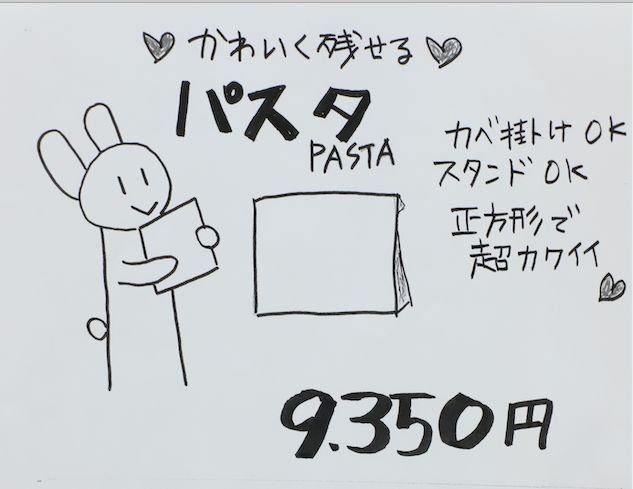 かわいく残せる
パスタ
PASTA
カベ掛け OK
スタンド OK
正方形で
超カワイイ
9.350円